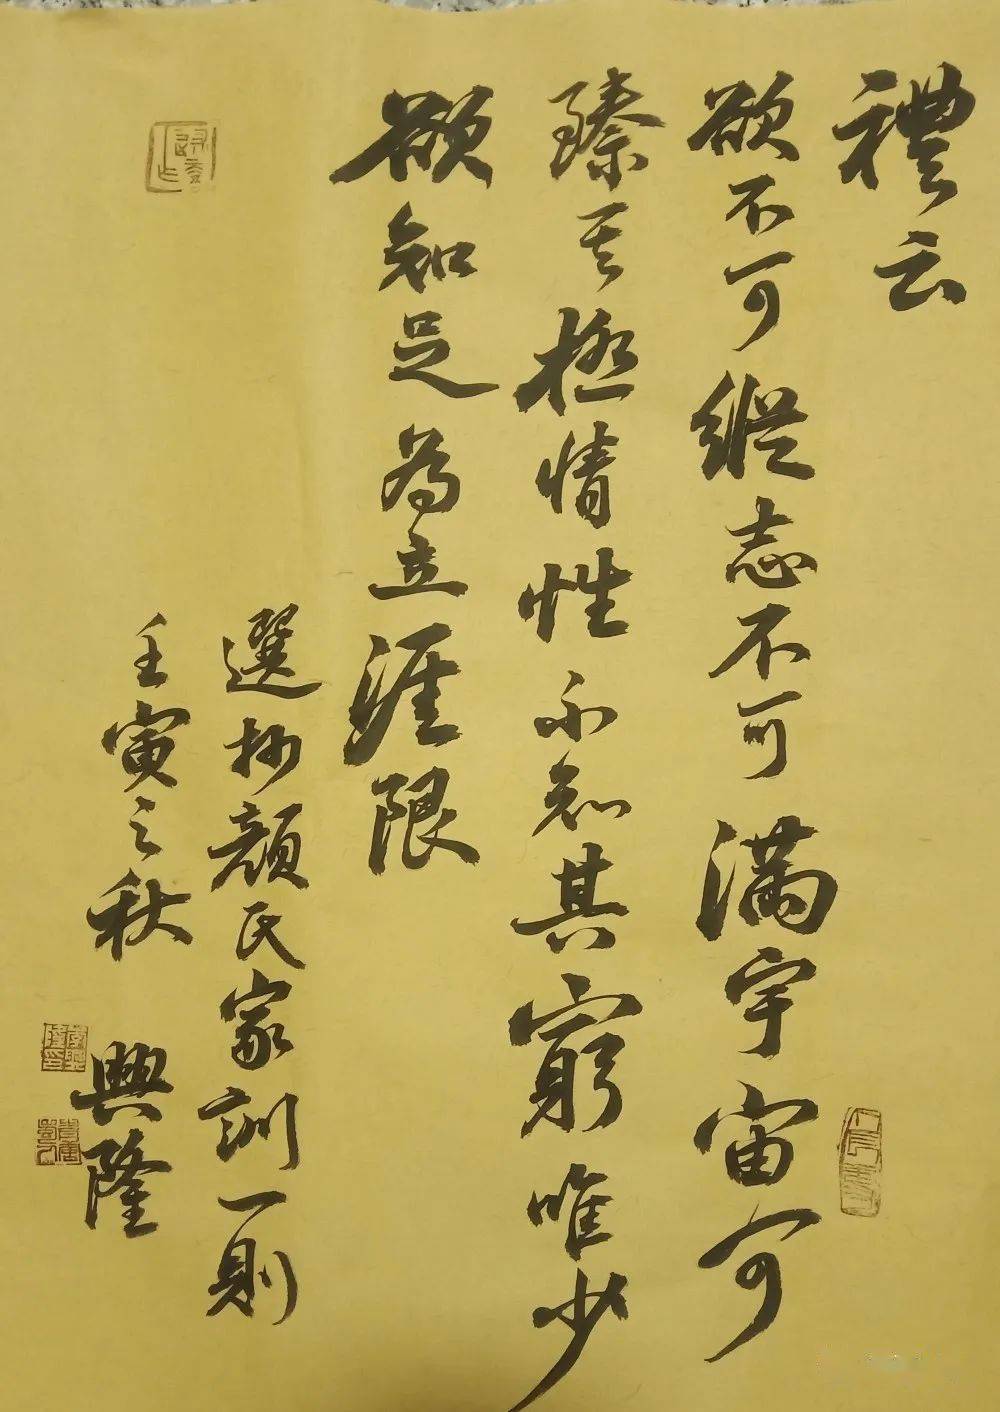 禮云
欲不可縱志不可滿宇宙可
臻其極情性不知其窮唯少
欲知足為立涯限
選抄顏氏家訓一則
壬寅之秋 興隆